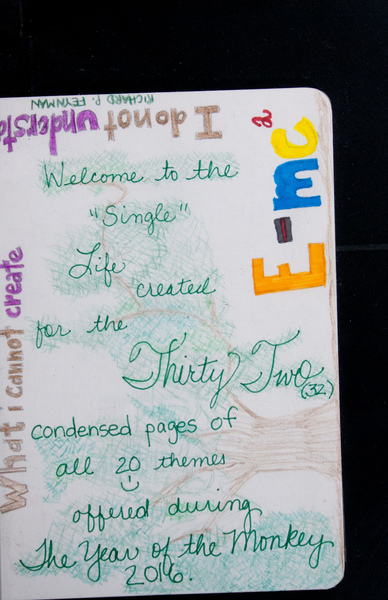 What i cannot create
I do not underst
RICHARD P. FEYNMAN
E=mc2
Welcome to the
"Single"
Life
created
for the
Thirty Two
(32)
condensed pages of
all 20 themes
offered during
The Year of the Monkey
2016.